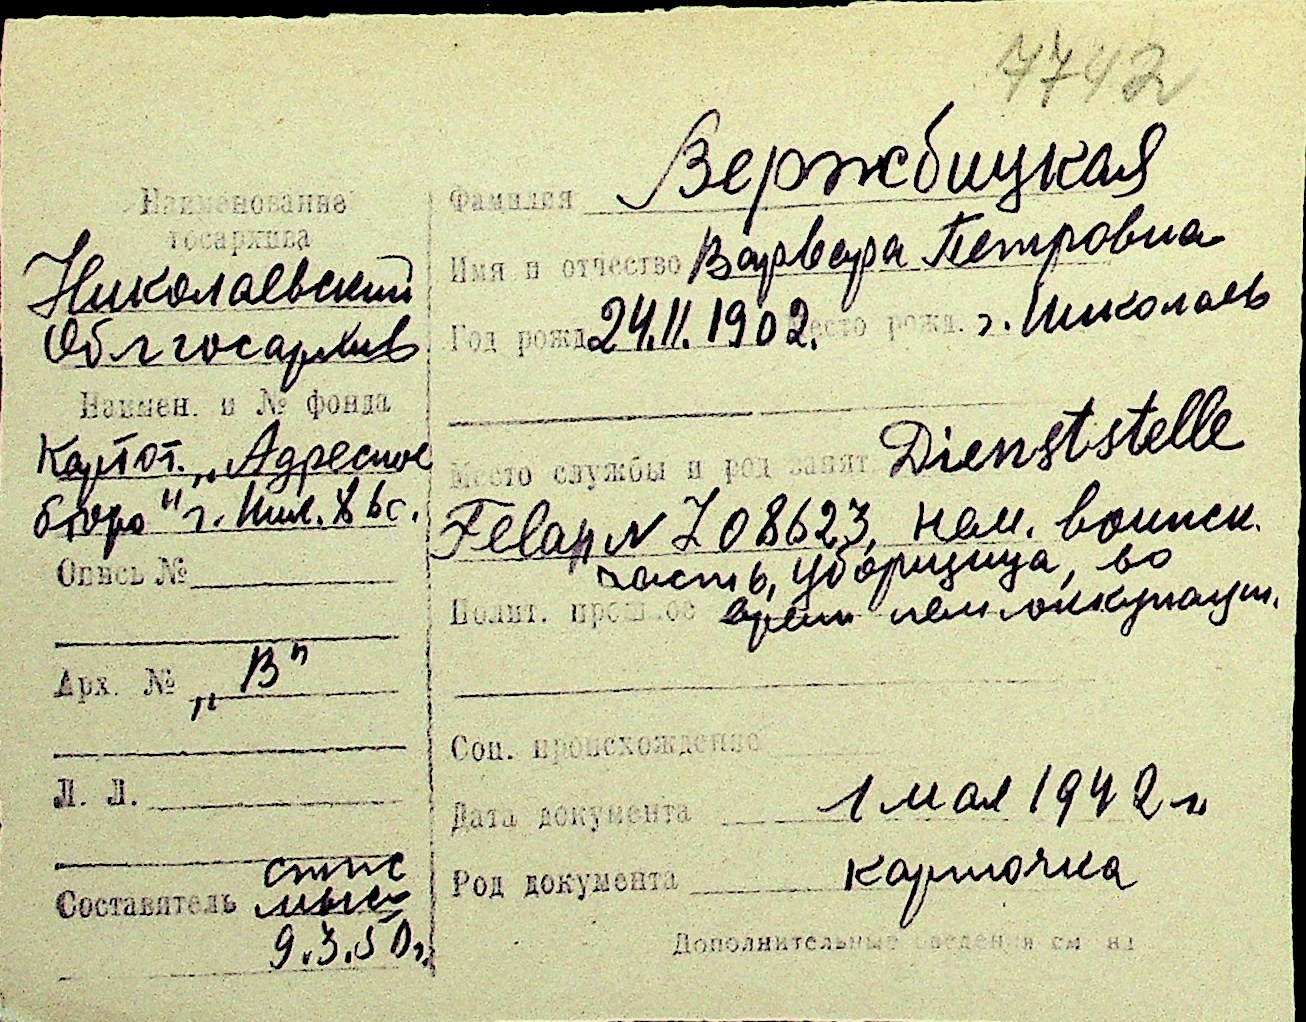 7742
Наименование
госархива
Николаевский
Облгосархив
Наимен. и № фонда
Картот. „Адресное
бюро" г. Ник.
Опись №
Арх. № „В"
Л. Л.
Составитель
9.3.50 г.
Фамилия Вержбицкая
Имя и отчество Варвара Петровна
Год рожд. 24.II.1902. место рожд. г. Николаев
Место службы и род занят Dienststelle
Felap N L08623, нем. воинск.
часть, уборщица, во
Полит. прошлое врем нем оккупации.
Соц. происхождение
Дата документа 1 мая 1942 г.
Род документа карточка
Дополнительные сведения см на